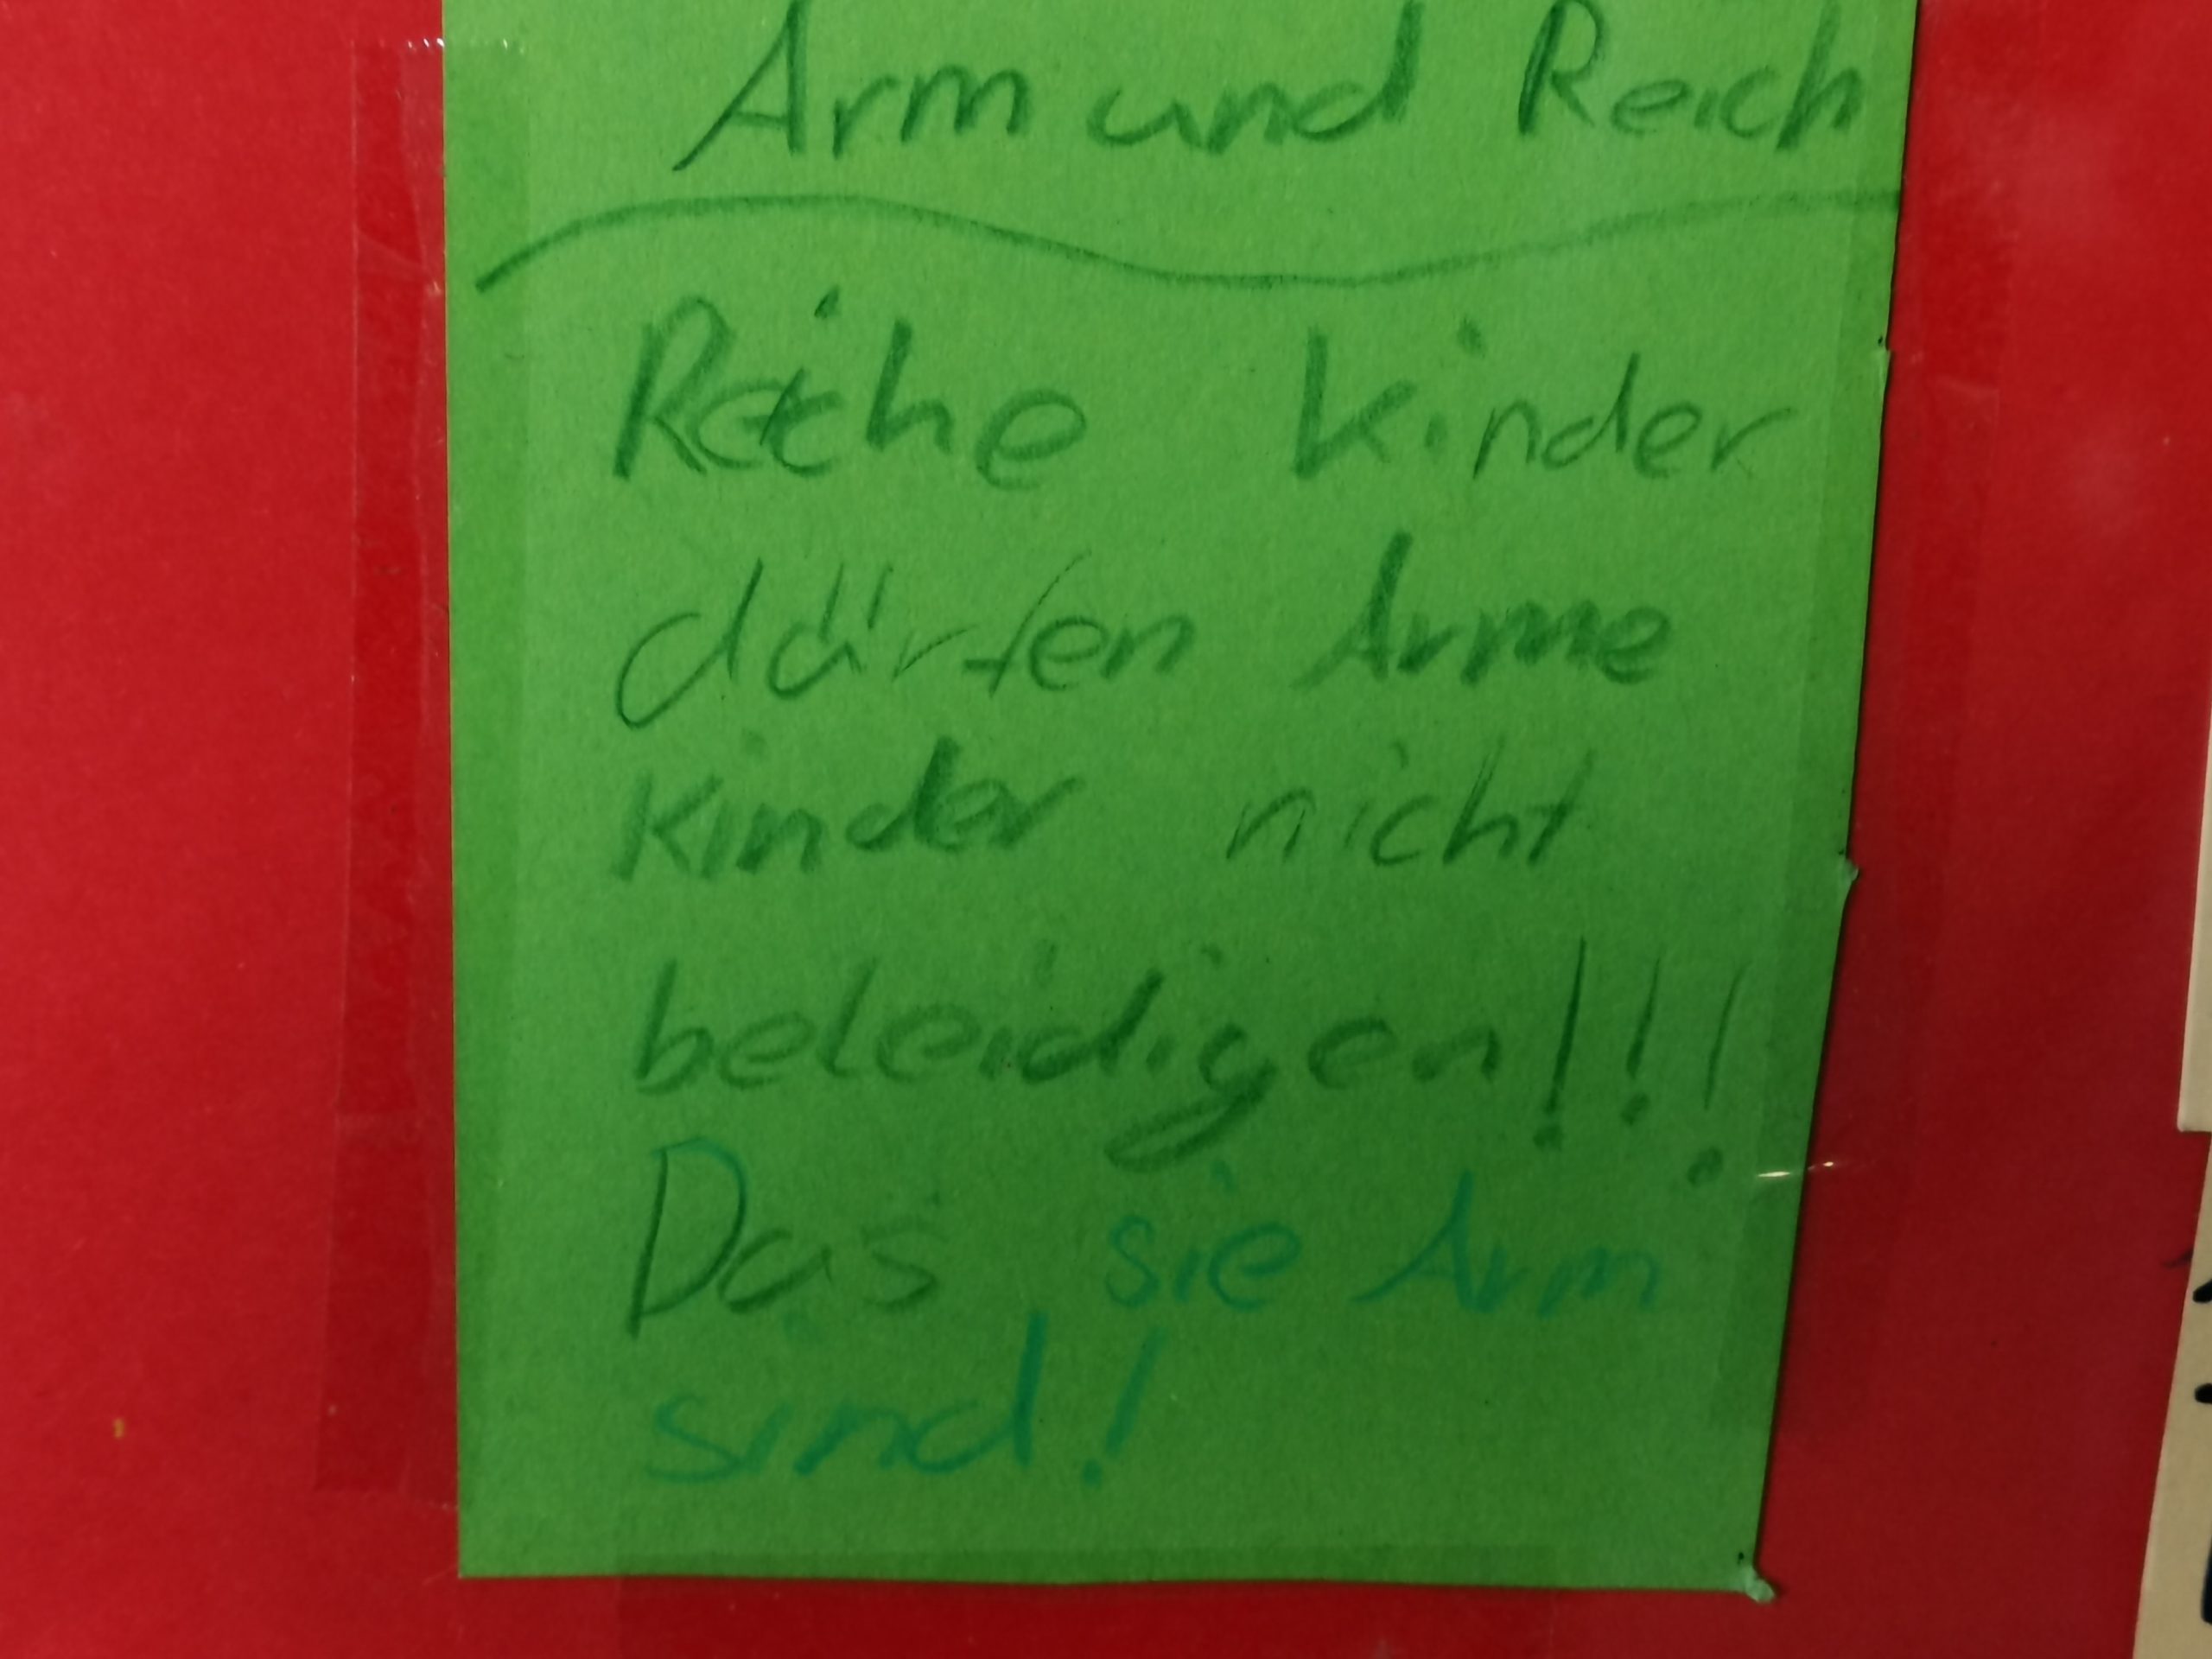 Arm und Reich
Reiche Kinder
dürfen Arme
Kinder nicht
beleidigen!!!
Das sie Arm
sind!